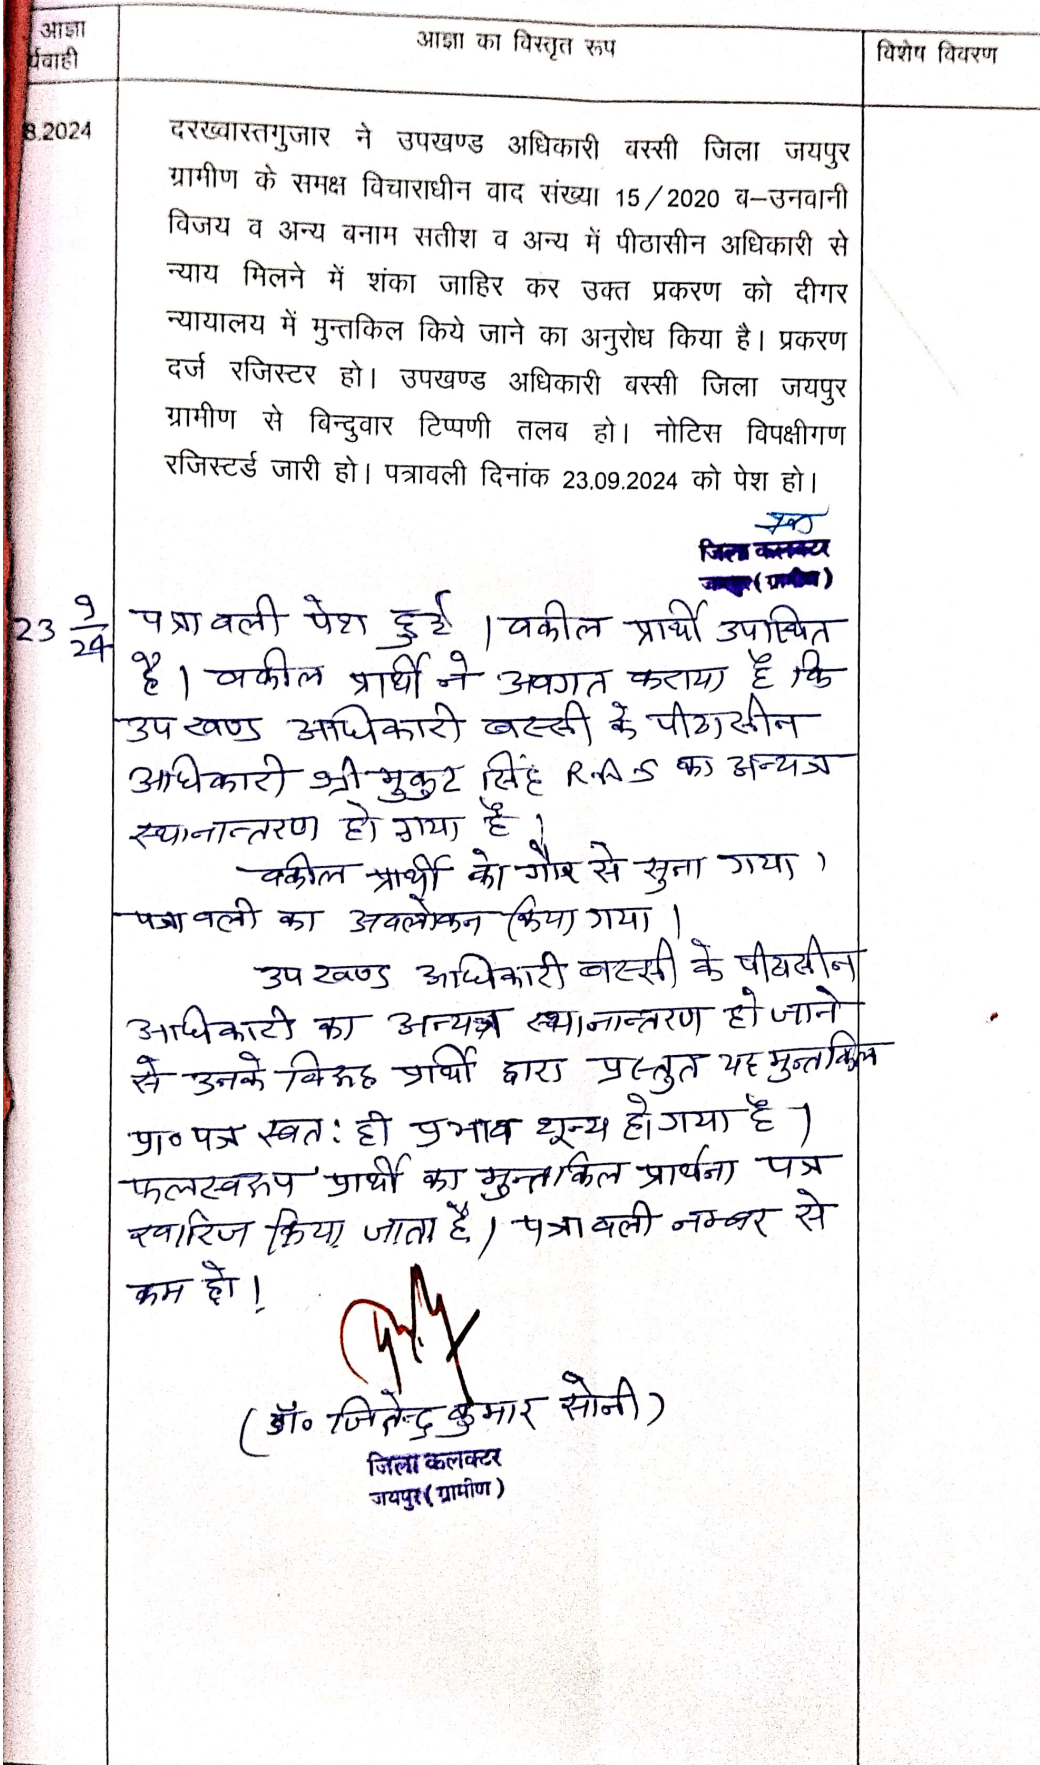 आज्ञा
र्यवाही
आज्ञा का विस्तृत रूप
विशेष विवरण
8.2024
दरख्वास्तगुजार ने उपखण्ड अधिकारी बस्सी जिला जयपुर
ग्रामीण के समक्ष विचाराधीन वाद संख्या 15/2020 ब-उनवानी
विजय व अन्य बनाम सतीश व अन्य में पीठासीन अधिकारी से
न्याय मिलने में शंका जाहिर कर उक्त प्रकरण को दीगर
न्यायालय में मुन्तकिल किये जाने का अनुरोध किया है। प्रकरण
दर्ज रजिस्टर हो। उपखण्ड अधिकारी बस्सी जिला जयपुर
ग्रामीण से बिन्दुवार टिप्पणी तलब हो। नोटिस विपक्षीगण
रजिस्टर्ड जारी हो। पत्रावली दिनांक 23.09.2024 को पेश हो।
जिला कलक्टर
जयपुर (ग्रामीण)
23 9/24
पत्रावली पेश हुई। वकील प्रार्थी उपस्थित
है। वकील प्रार्थी ने अवगत कराया है कि
उपखण्ड अधिकारी बस्सी के पीठासीन
अधिकारी श्री मुकुट सिंह R.A.S का अन्यत्र
स्थानान्तरण हो गया है।
वकील प्रार्थी को गौर से सुना गया।
पत्रावली का अवलोकन किया गया।
उपखण्ड अधिकारी बस्सी के पीठासीन
अधिकारी का अन्यत्र स्थानान्तरण हो जाने
से उनके विरूद्ध प्रार्थी द्वारा प्रस्तुत यह मुन्तकिल
प्रा० पत्र स्वत: ही प्रभाव शून्य हो गया है।
फलस्वरूप प्रार्थी का मुन्तकिल प्रार्थना पत्र
खारिज किया जाता है। पत्रावली नम्बर से
कम हो।
(डॉ० जितेन्द्र कुमार सोनी)
जिला कलक्टर
जयपुर (ग्रामीण)